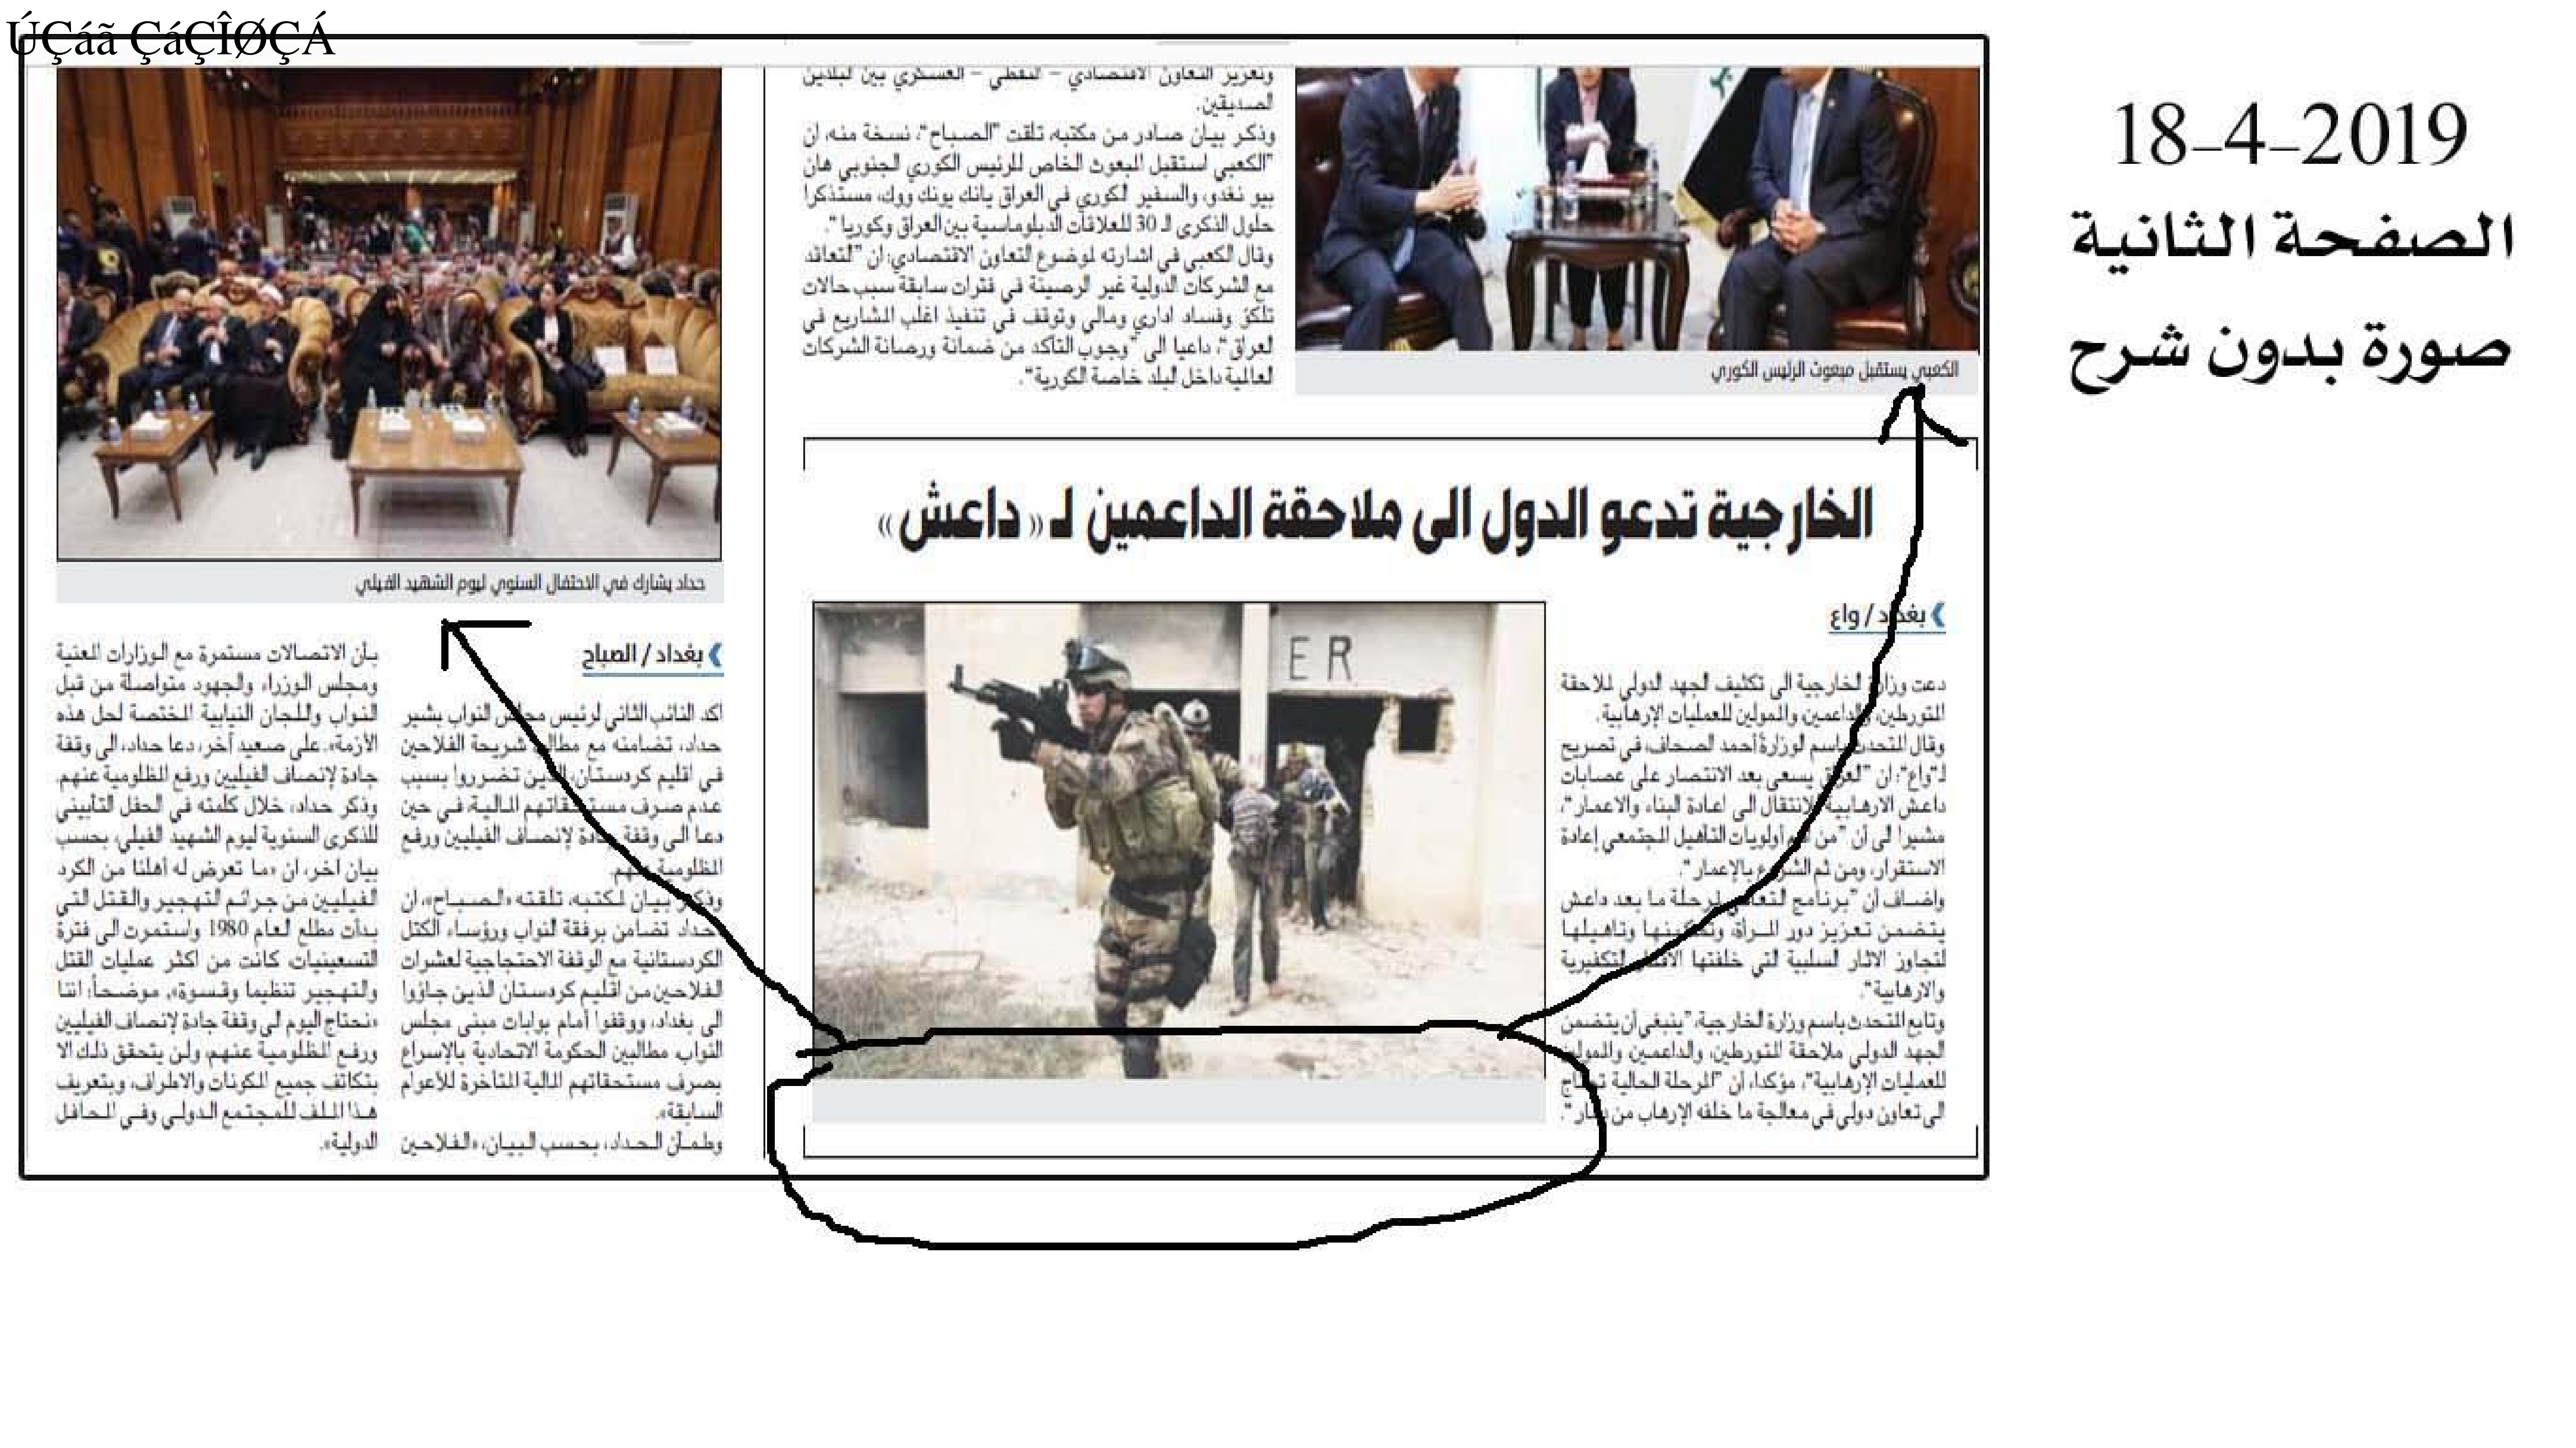 ÚÇáã ÇáÇÎØÇÁ
18-4-2019
الصفحة الثانية
صورة بدون شرح
وتعزيز التعاون الاقتصادي – النفطي – العسكري بين البلدين
الصديقين.
وذكر بيان صادر من مكتبه، تلقت "الصباح"، نسخة منه، ان
"الكعبي استقبل المبعوث الخاص للرئيس الكوري الجنوبي هان
بيو نغدو، والسفير الكوري في العراق يانك يونك ووك، مستذكرا
حلول الذكرى الـ 30 للعلاقات الدبلوماسية بين العراق وكوريا ".
وقال الكعبي في اشارته لموضوع التعاون الاقتصادي: ان "التعاقد
مع الشركات الدولية غير الرصينة في فترات سابقة سبب حالات
تلكؤ وفساد اداري ومالي وتوقف في تنفيذ اغلب المشاريع في
العراق"، داعيا الى "وجوب التأكد من ضمانة ورصانة الشركات
العالمية داخل البلد خاصة الكورية".
الكعبي يستقبل مبعوث الرئيس الكوري
الخارجية تدعو الدول الى ملاحقة الداعمين لـ « داعش »
بغداد / واع
دعت وزارة الخارجية الى تكثيف الجهد الدولي لملاحقة
المتورطين، والداعمين، والممولين للعمليات الإرهابية.
وقال المتحدث باسم الوزارة أحمد الصحاف، في تصريح
لـ"واع": ان "العراق يسعى بعد الانتصار على عصابات
داعش الارهابية للانتقال الى اعادة البناء والاعمار"،
مشيرا الى أن "من أهم أولويات التأهيل المجتمعي إعادة
الاستقرار، ومن ثم الشروع بالإعمار".
واضاف أن "برنامج التعافي لمرحلة ما بعد داعش
يتضمن تعزيز دور المرأة، وتمكينها وتاهيلها
لتجاوز الاثار السلبية التي خلفتها الافكار التكفيرية
والارهابية".
وتابع المتحدث باسم وزارة الخارجية، "ينبغي أن يتضمن
الجهد الدولي ملاحقة المتورطين، والداعمين والممولين
للعمليات الإرهابية"، مؤكدا، أن "المرحلة الحالية تحتاج
الى تعاون دولي في معالجة ما خلفه الإرهاب من دمار".
ER
حداد يشارك في الاحتفال السنوي ليوم الشهيد الفيلي
بغداد / الصباح
أكد النائب الثاني لرئيس مجلس النواب بشير
حداد، تضامنه مع مطالب شريحة الفلاحين
في اقليم كردستان، الذين تضرروا بسبب
عدم صرف مستحقاتهم المالية، في حين
دعا الى وقفة جادة لإنصاف الفيليين ورفع
المظلومية عنهم.
وذكر بيان لمكتبه، تلقته «الصباح»، ان
«حداد تضامن برفقة النواب ورؤساء الكتل
الكردستانية مع الوقفة الاحتجاجية لعشرات
الفلاحين من اقليم كردستان الذين جاؤوا
الى بغداد، ووقفوا أمام بوابات مبنى مجلس
النواب، مطالبين الحكومة الاتحادية بالإسراع
بصرف مستحقاتهم المالية المتأخرة للأعوام
السابقة».
وطمأن الحداد، بحسب البيان، «الفلاحين
بأن الاتصالات مستمرة مع الوزارات المعنية
ومجلس الوزراء والجهود متواصلة من قبل
النواب واللجان النيابية المختصة لحل هذه
الأزمة». على صعيد آخر، دعا حداد، الى وقفة
جادة لإنصاف الفيليين ورفع المظلومية عنهم.
وذكر حداد، خلال كلمته في الحفل التأبيني
للذكرى السنوية ليوم الشهيد الفيلي، بحسب
بيان اخر، ان «ما تعرض له أهلنا من الكرد
الفيليين من جرائم التهجير والقتل التي
بدأت مطلع العام 1980 واستمرت الى فترة
التسعينيات، كانت من اكثر عمليات القتل
والتهجير تنظيما وقسوة»، موضحاً: اننا
«نحتاج اليوم الى وقفة جادة لإنصاف الفيليين
ورفع المظلومية عنهم، ولن يتحقق ذلك الا
بتكاتف جميع المكونات والاطراف، وبتعريف
هذا الملف للمجتمع الدولي وفي المحافل
الدولية».